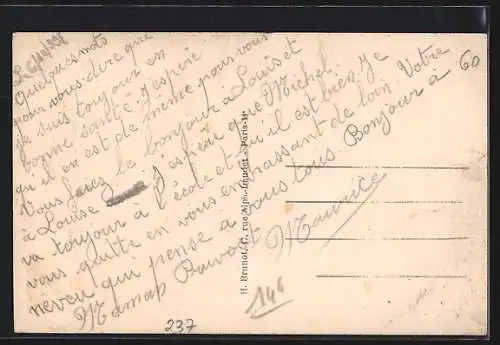 Quelques mots
pour vous dire que
je suis toujour en
bonne santé. J'espère
qu'il en est de même pour vous
Vous ferez le bonjour à Louis et
à Louise J'espère que Michel
va toujour à l'école et qu'il est bien. Je
vous quitte en vous embrassant de loin Votre
neveu qui pense à vous tous. Bonjour à
Maman
Maurice
H. Brunot, rue Paris-14e
144
237
60